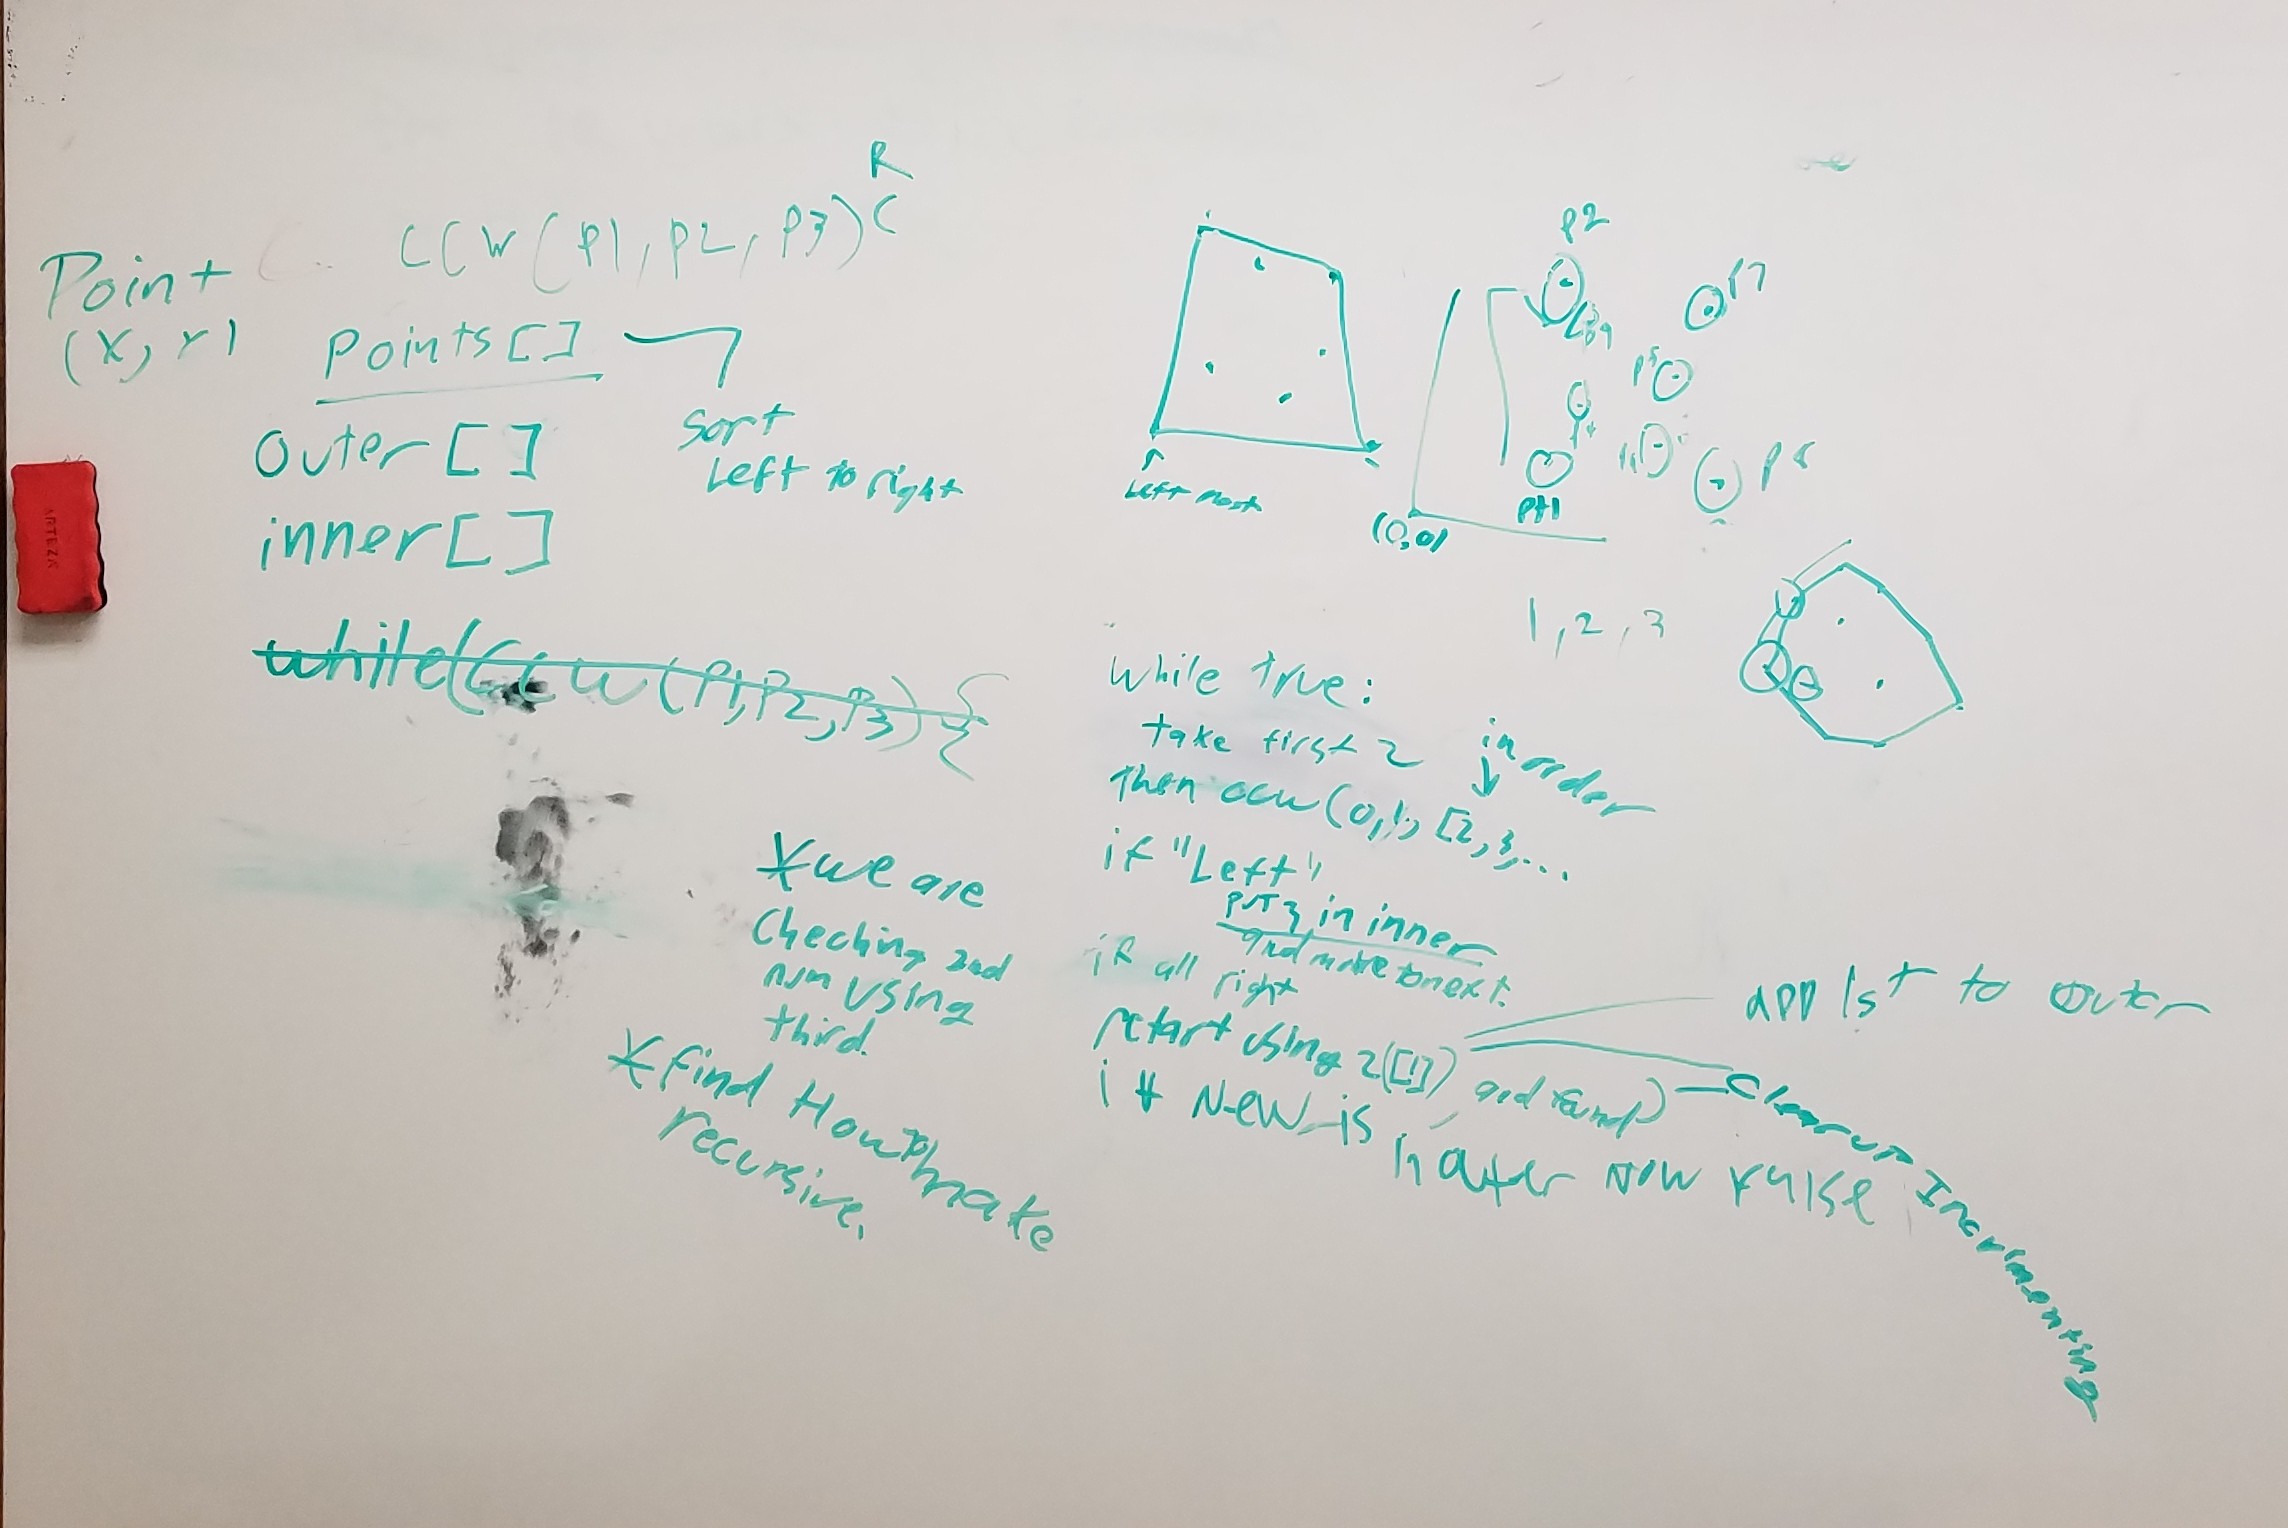 R
CCW(P1,P2,P3)C
Point
(X,Y)
points[]
sort
Left to right
outer[]
inner[]
while(CCW(P1,P2,P3){
*we are
Checking 2nd
num using
third.
*find How to make
recursive.
Left most
P2
P7
P5
P8
pt1
(0,0)
1,2,3
while true:
take first 2
in order
then ccw(0,1,[2,3,...
if "Left"
put 3 in inner
and move to next.
if all right
restart using 2([1])
app 1st to outer
if New is in outer now raise
Clear up Incrimenting
ARTEZA